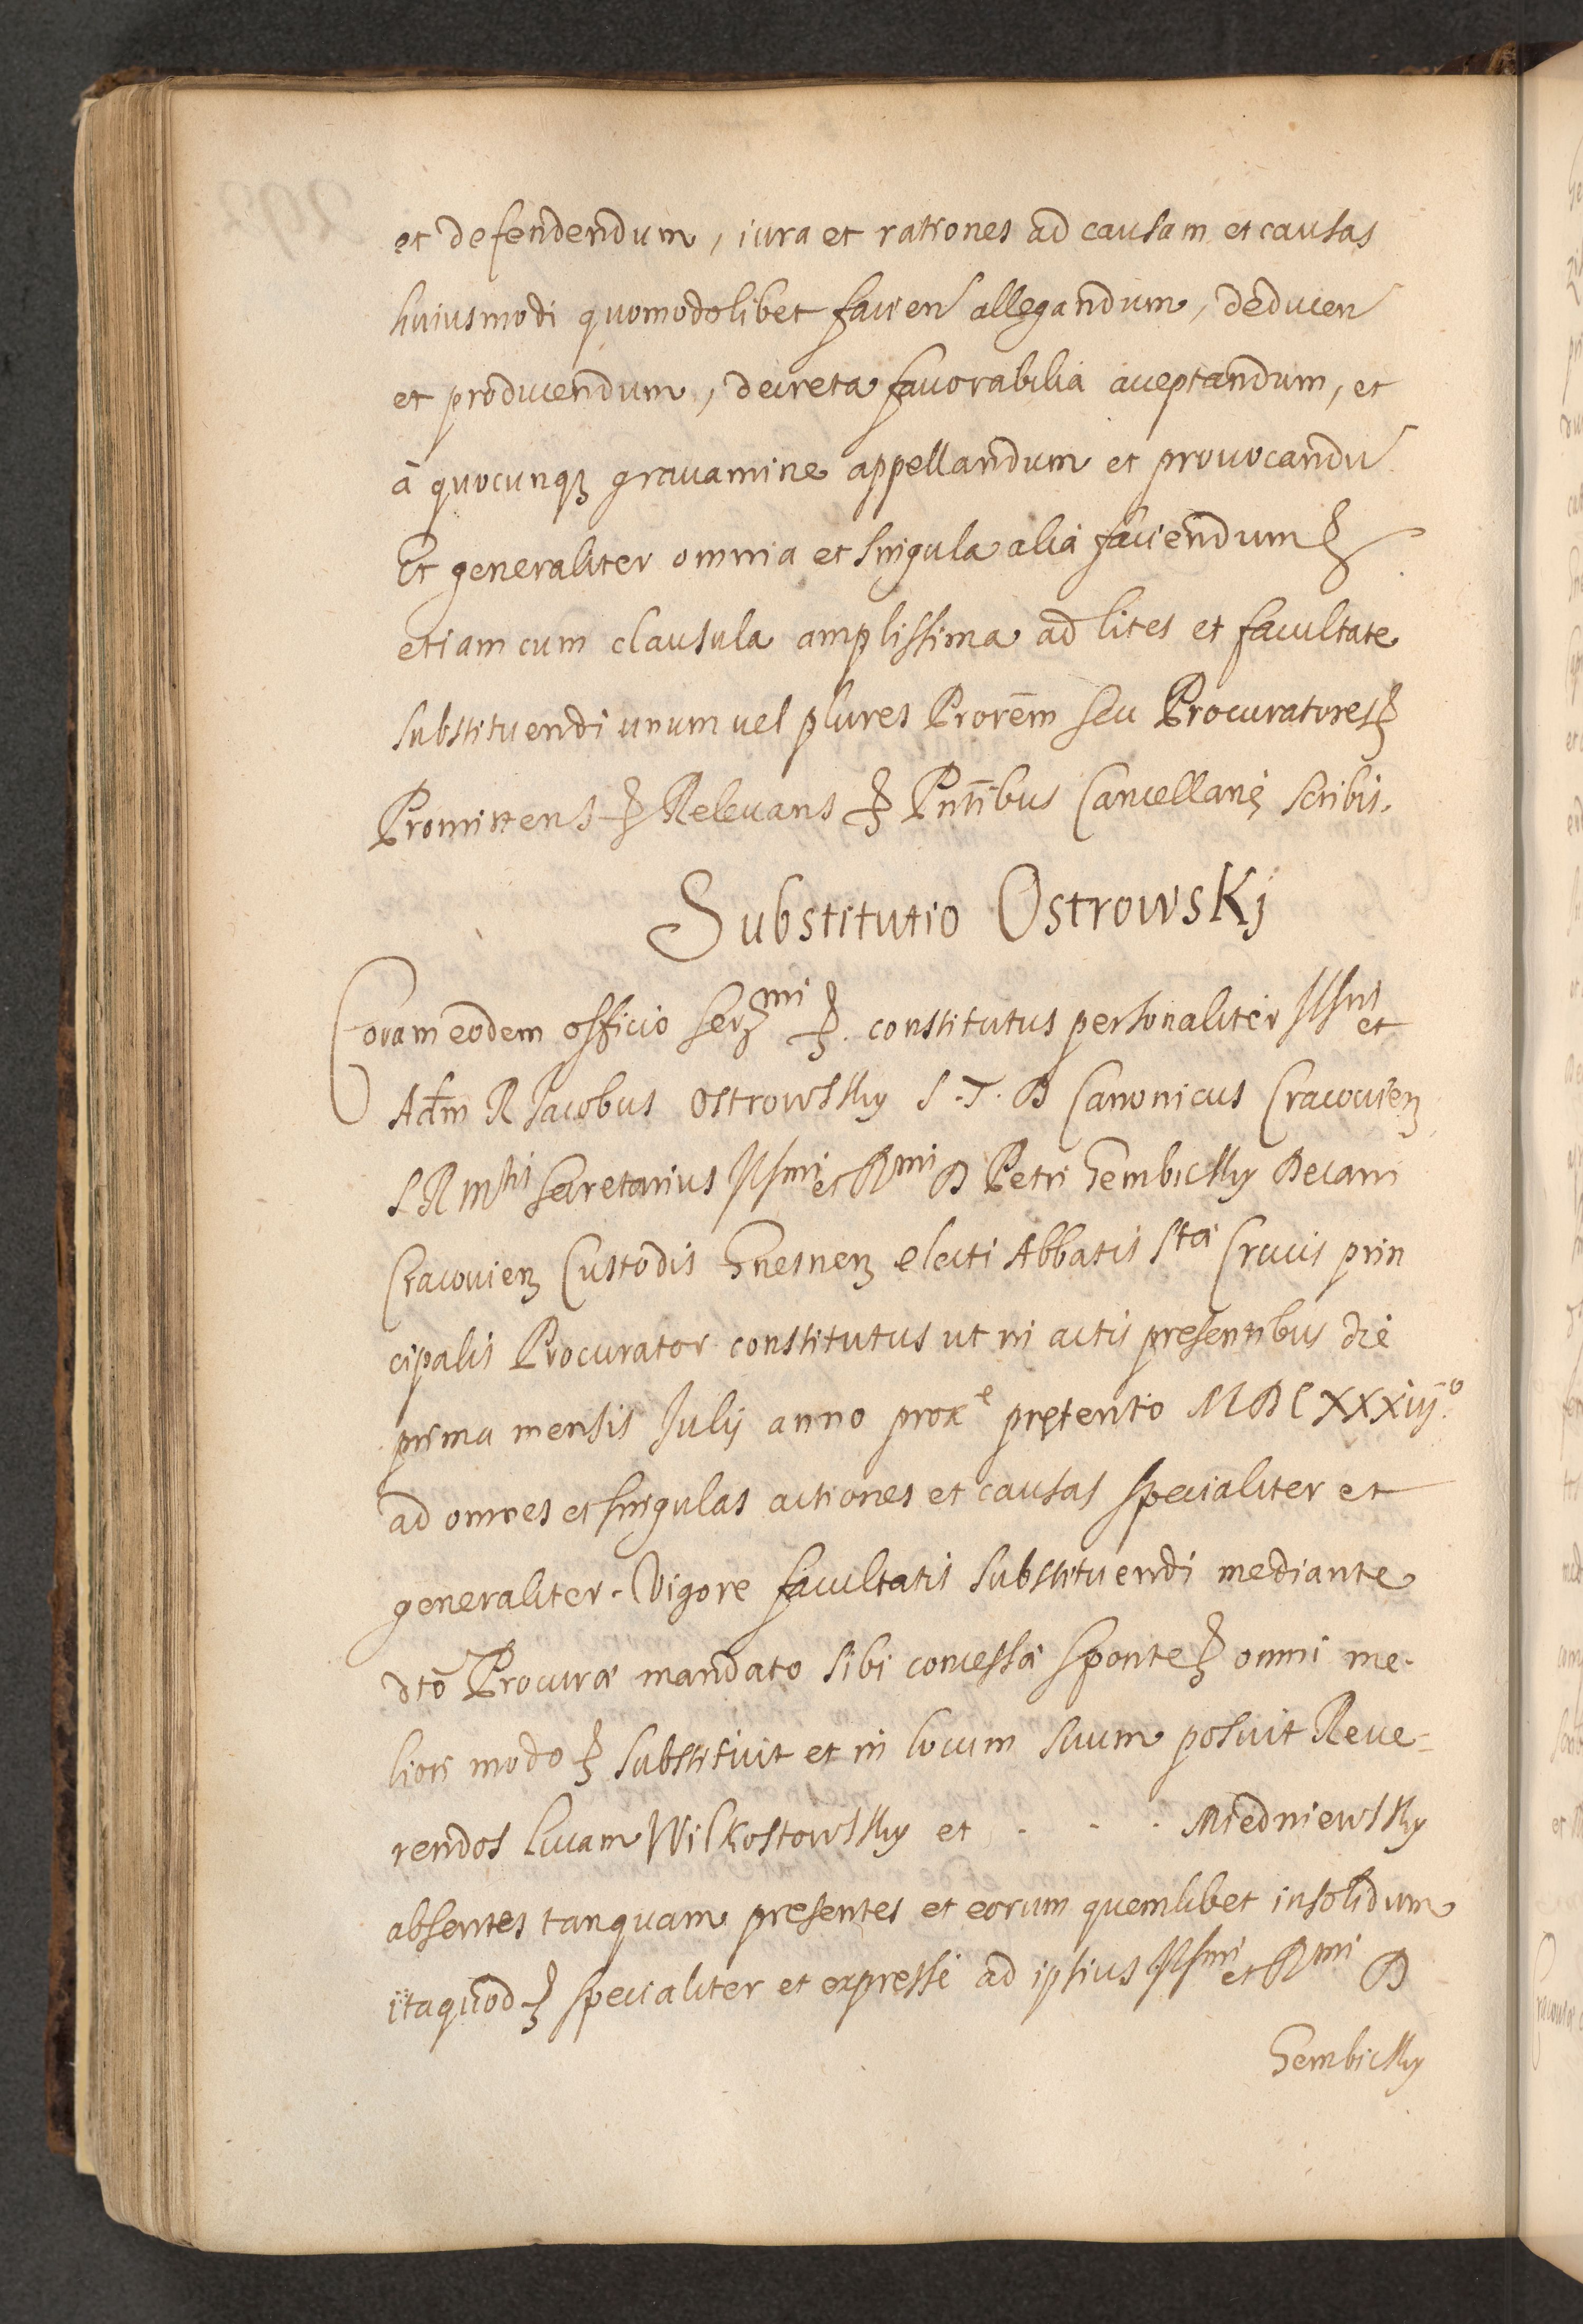 et defendendum, iura et rationes ad causam et causas
huiusmodi quomodolibet facien allegandum, deducen
et producendum, decreta fauorabilia acceptandum, et
à quocunqʒ grauamine appellandum et prouocandū
Et generaliter omnia et singula alia faciendum ꝛc
etiam cum clausula amplissima ad lites et facultate
substituendi unum uel plures Prorēm seu Procuratores ꝛc
Promittens ꝛc Releuans ꝛc Pntībus Cancellarię scribis.
Substitutio Ostrowskj
Coram eodem officio Serᵐⁱ ꝛc. constitutus personaliter Illsms et
Adm R Jacobus Ostrowsky S. T. D Canonicus Cracouien
S R Mᵗⁱˢ Secretarius Illsmi et Rᵐⁱ D Petri Gembicky Decani
Cracouien Custodis Gnesnen electi Abbatis Stæ Crucis prin
cipalis Procurator constitutus ut in actis presentibus die
prima mensis Julij anno proxᵉ pręterito MDCXXXiijº
ad omnes et singulas actiones et causas specialiter et
generaliter. Vigore facultatis substituendi mediante
dto Procuræ mandato sibi concessæ sponte ꝛc omni me-
liori modo ꝛc substituit et in locum suum posuit Reue-
rendos Lucam Wilkostowsky et . . . Miedniewsky
absentes tanquam presentes et eorum quemlibet insolidum
itaquod ꝛc specialiter et expresse ad ipsius Illsmi et Rᵐⁱ D
Gembicky